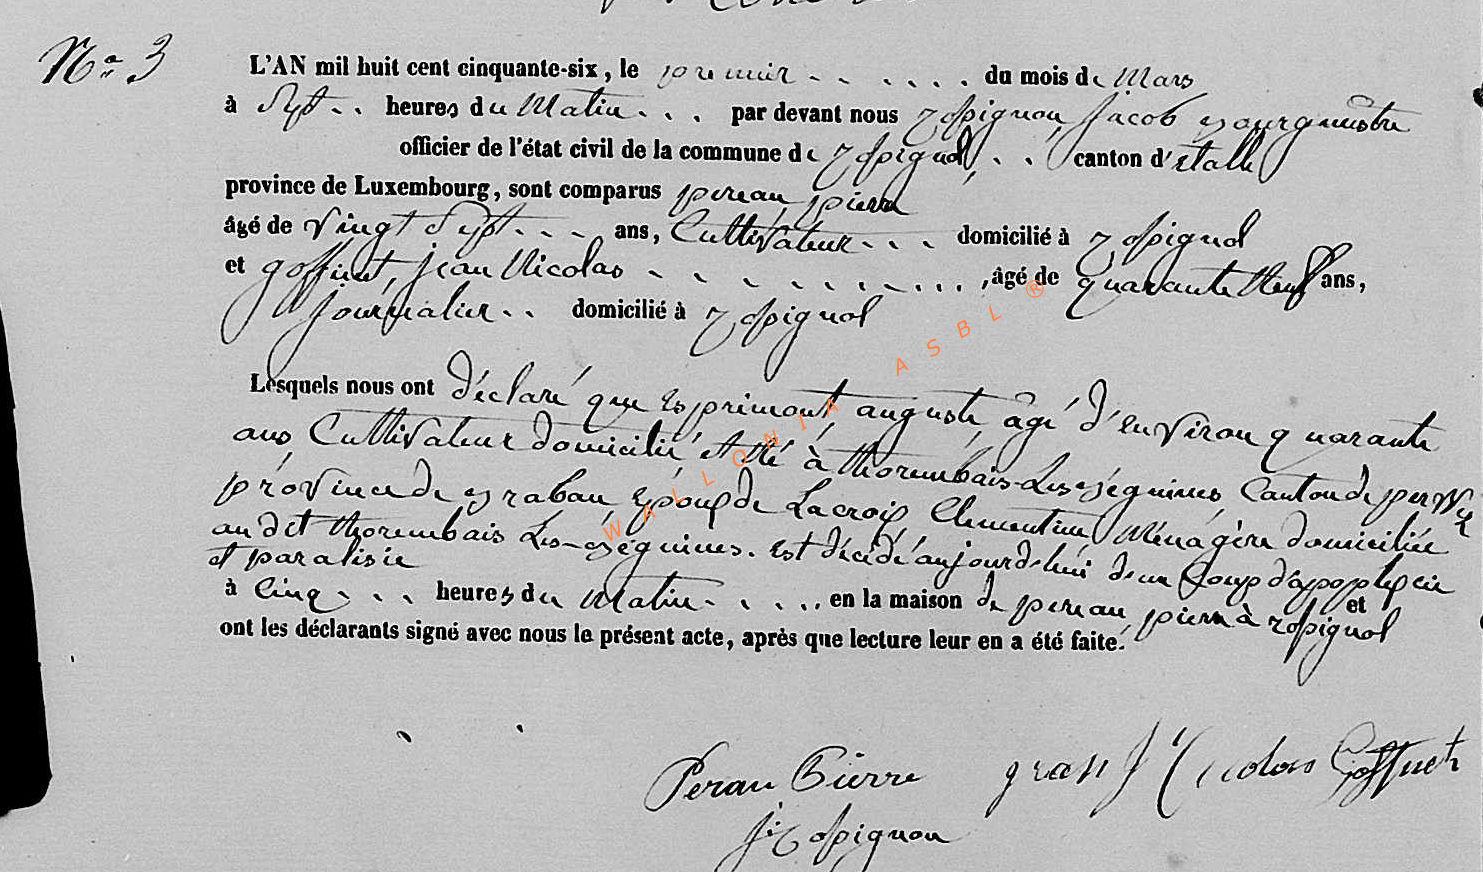 No 3
L'AN mil huit cent cinquante-six, le premier du mois de Mars
à Sept heures du Matin par devant nous Rossignon, Jacob Bourgmestre
officier de l'état civil de la commune de Rossignol canton d'étalle
province de Luxembourg, sont comparus pereau, pierre
âgé de Vingt Sept ans, Cultivateur domicilié à Rossignol
et goffinet, jean Nicolas âgé de quarante Neuf ans,
journalier domicilié à Rossignol
Lesquels nous ont déclaré que Esprimont, auguste âgé d'environ quarante
ans Cultivateur domicilié et né à thorembais-Les-Béguines Canton de perwez
province de Braban Epoux de Lacroix Clementine Ménagère domiciliée
au dit thorembais Les-Béguines. est décédé aujourdehui deun Coup d'apoplexcie
et paralisie
à Cinq heures du Matin en la maison de pereau pierre à Rossignol et
ont les déclarants signé avec nous le présent acte, après que lecture leur en a été faite.
Perau Pierre Jean Nicolas Goffinet
J: Rossignon
WALLONIA ASBL ®